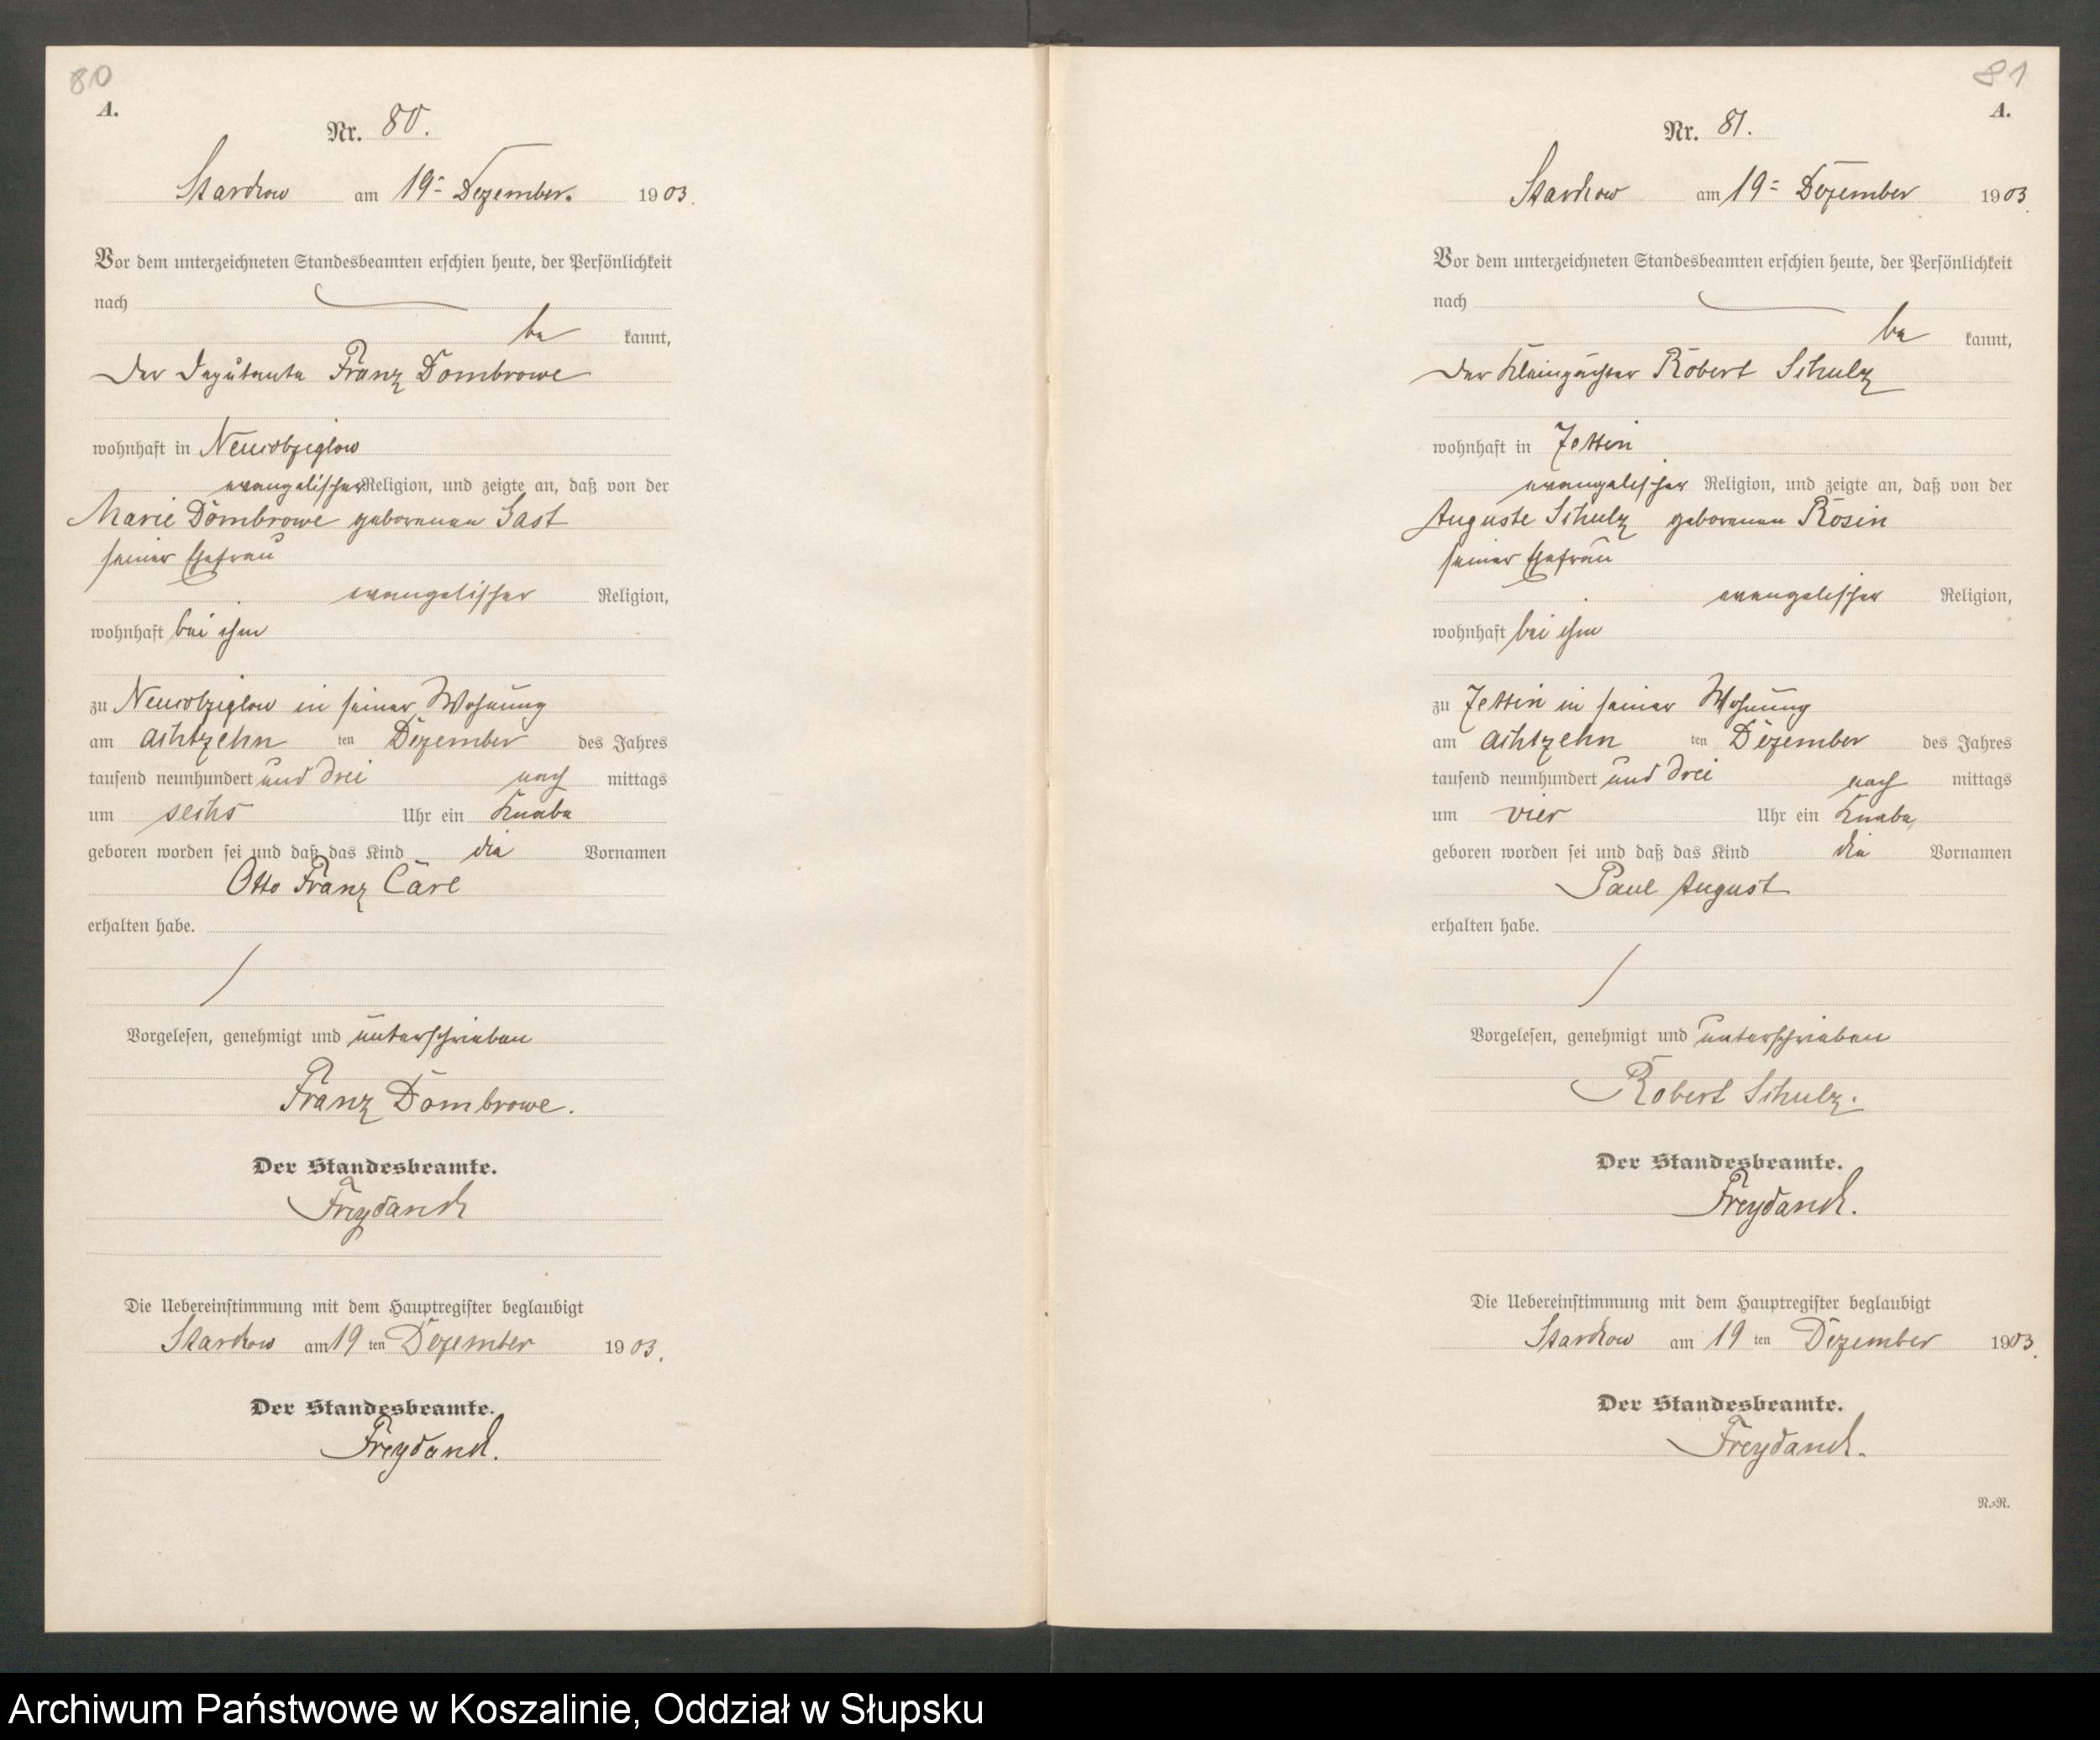 80
A.
Nr. 80.
Starckow am 19ᵗ Dezember. 1903.
Vor dem unterzeichneten Standesbeamten erschien heute, der Persönlichkeit
nach
be kannt,
Der Deputante Franz Dombrowe
wohnhaft in Neuwobzeglow
evangelischer Religion, und zeigte an, daß von der
Marie Dombrowe geborenen Gast
seiner Ehefrau
evangelischer Religion,
wohnhaft bei ihm
zu in seiner Wohnung
am achtzehn ten Dezember des Jahres
tausend neunhundert und drei nach mittags
um sechs Uhr ein Knabe
geboren worden sei und daß das Kind die Vornamen
Otto Franz Carl
erhalten habe.
Vorgelesen, genehmigt und unterschrieben
Franz Dombrowe.
Der Standesbeamte.
Freydanck
Die Uebereinstimmung mit dem Hauptregister beglaubigt
Starckow am 19 ten Dezember 1903.
Der Standesbeamte.
Freydanck.
81
A.
Nr. 81.
Starckow am 19ᵗ Dezember 1903.
Vor dem unterzeichneten Standesbeamten erschien heute, der Persönlichkeit
nach
be kannt,
Der Kleinpächter Robert Schulz
wohnhaft in Jettin
evangelischer Religion, und zeigte an, daß von der
Auguste Schulz geborenen Rosin
seiner Ehefrau
evangelischer Religion,
wohnhaft bei ihm
zu Jettin in seiner Wohnung
am achtzehn ten Dezember des Jahres
tausend neunhundert und drei nach mittags
um vier Uhr ein Knabe
geboren worden sei und daß das Kind die Vornamen
Paul August
erhalten habe.
Vorgelesen, genehmigt und unterschrieben
Robert Schulz.
Der Standesbeamte.
Freydanck.
Die Uebereinstimmung mit dem Hauptregister beglaubigt
Starckow am 19 ten Dezember 1903.
Der Standesbeamte.
Freydanck.
N.=R.
Archiwum Państwowe w Koszalinie, Oddział w Słupsku